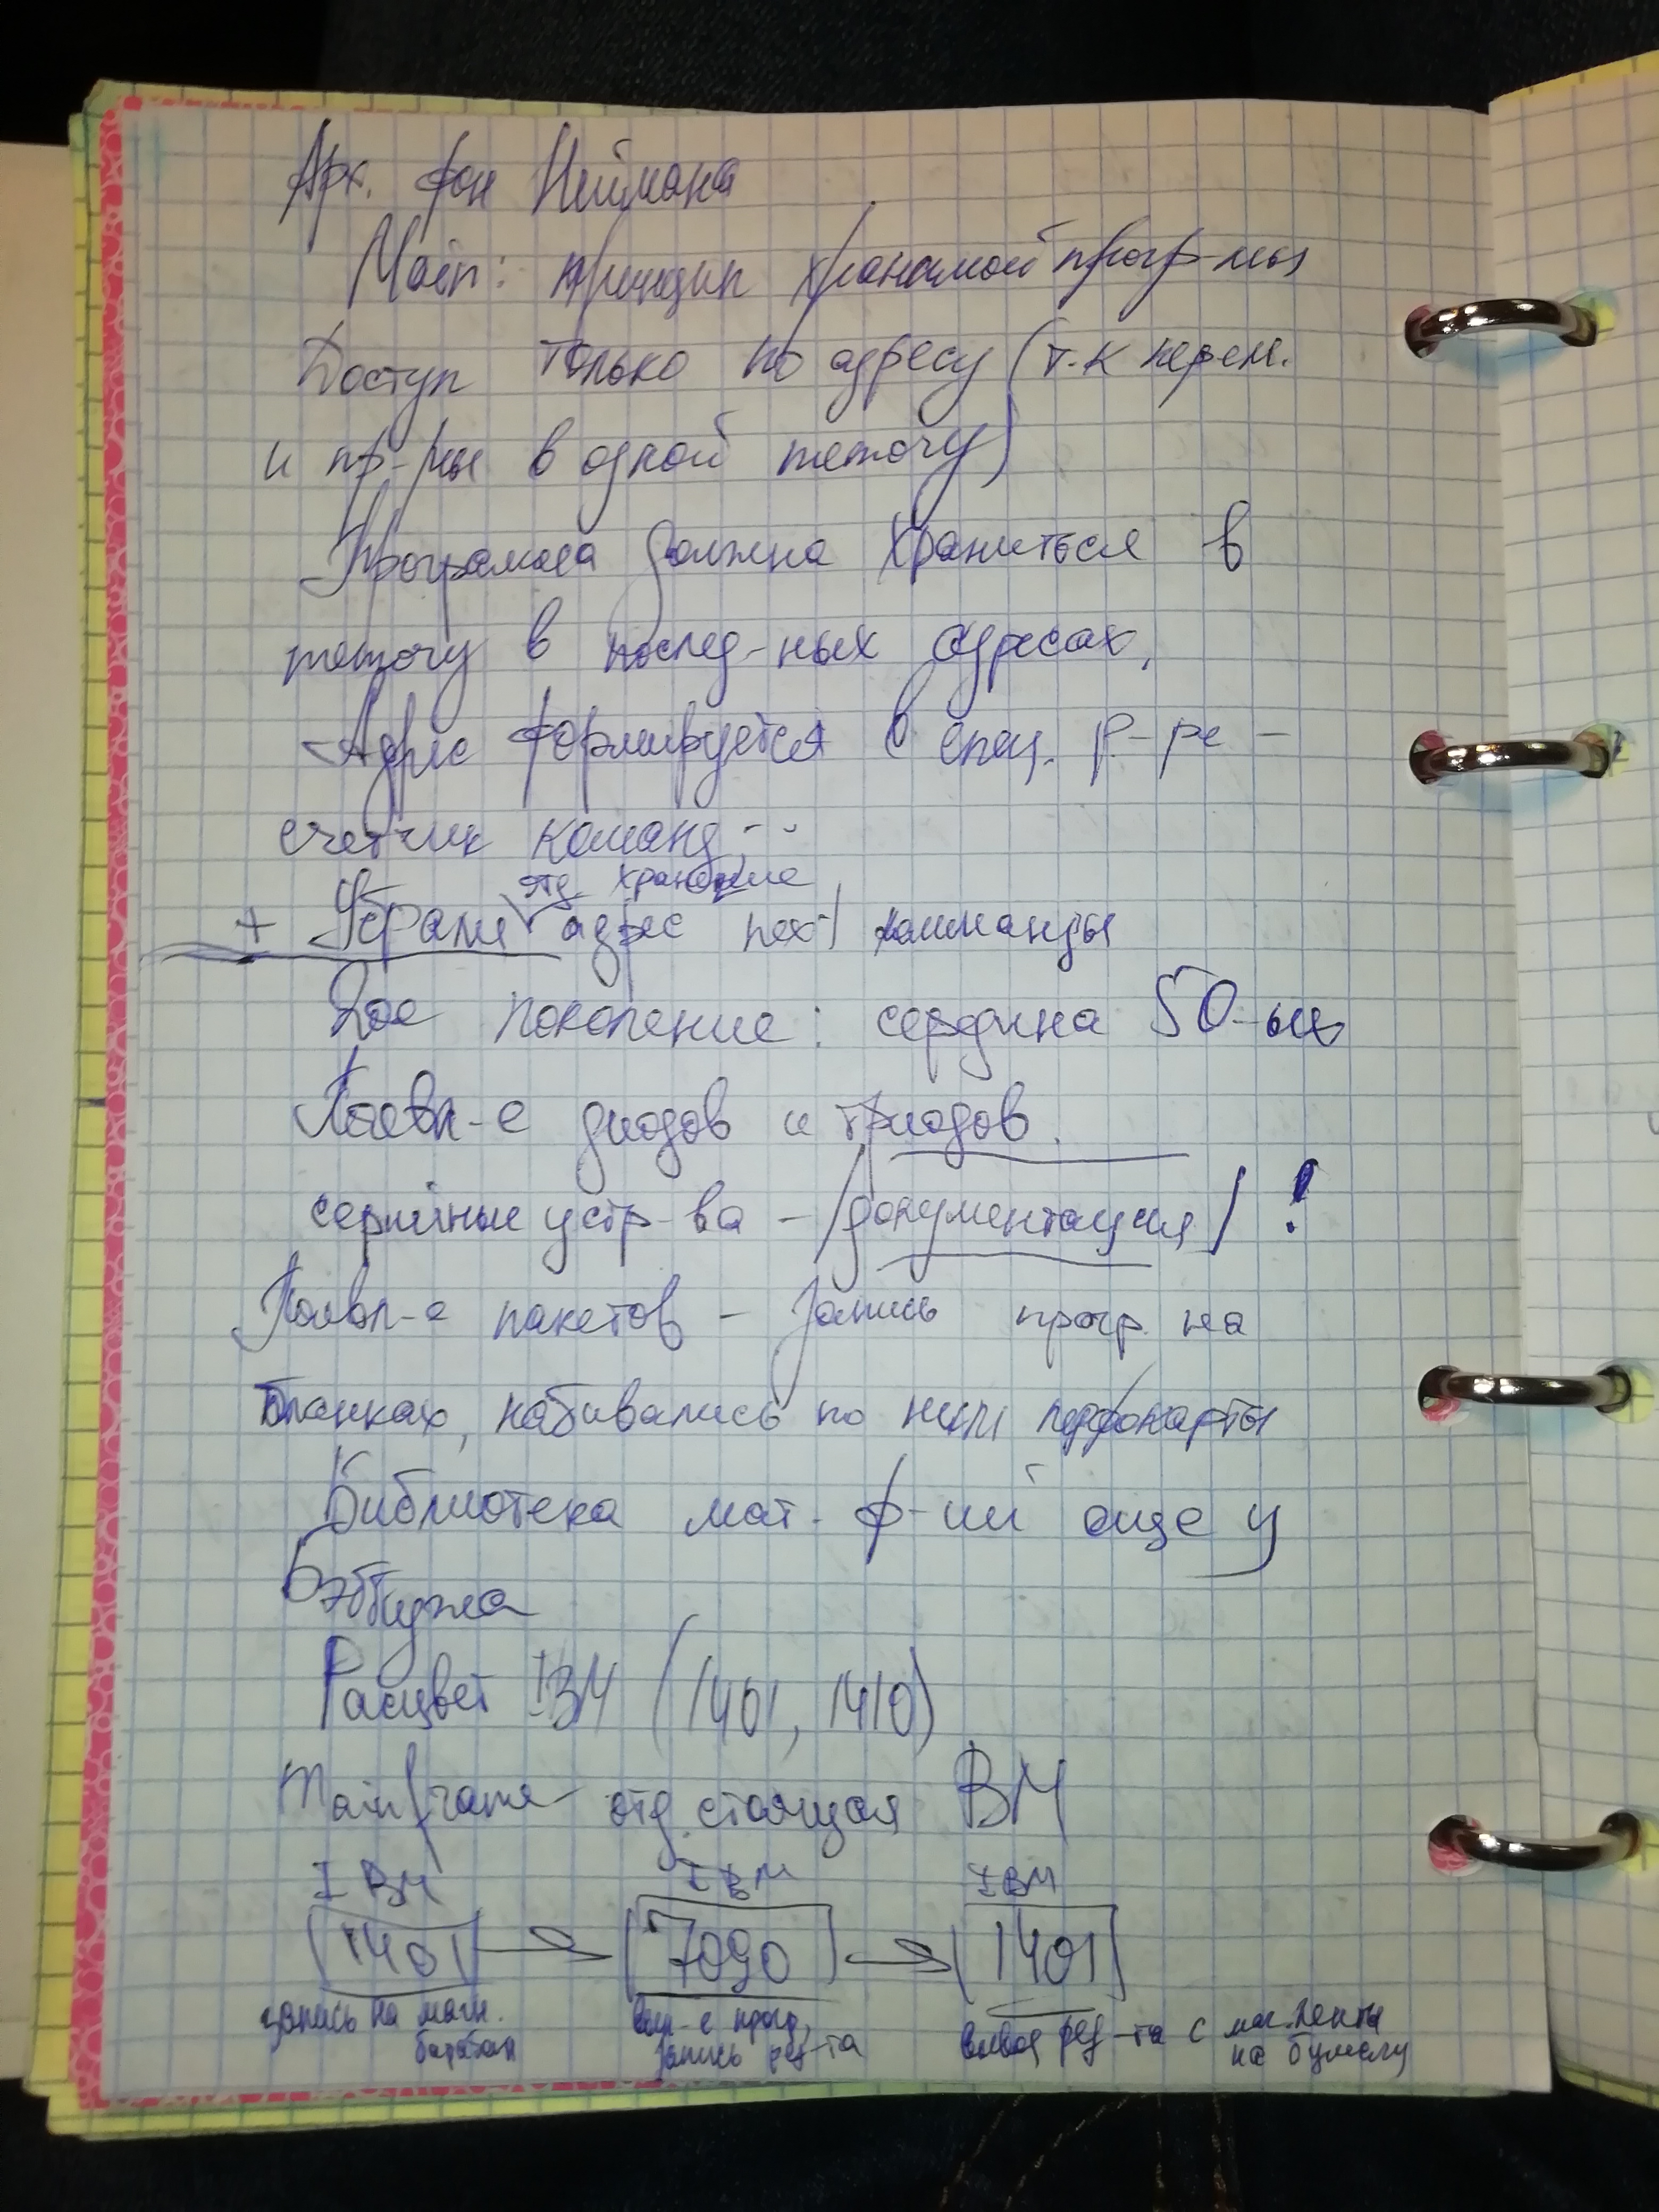 Арх. фон Неймана
Main: принцип хранимой прогр-мы
Доступ только по адресу (т.к перем.
и пр-мы в одной memory)
Программа должна храниться в
memory в послед-ных адресах.
Адрес формируется в спец. р-ре -
счетчик команд;
отд. хранение
+ Убрали адрес next комманды
2ое поколение: середина 50-ых
Появл-е диодов и триодов.
серийные устр-ва - /документация/ !
Появл-е пакетов - запись прогр. на
бланках, набивались по ним перфокарты
Библиотека мат. ф-ий еще у
Бэббиджа
Расцвет IBM (1401, 1410)
Mainframe - отд. стоящая ВМ
IBM IBM IBM
1401 → 7090 → 1401
запись на магн. барабан
вып-е прогр, запись рез-та
вывод рез-та с маг. ленты на бумагу